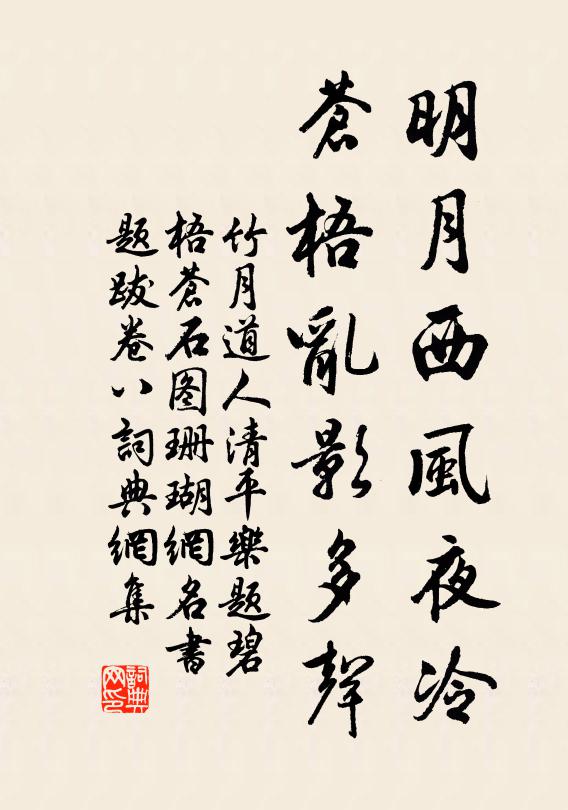 明月西風夜冷
蒼梧亂影多聲
竹月道人清平樂题碧
梧蒼石图珊瑚網名書
题跋卷八詞典網集
詞典網印